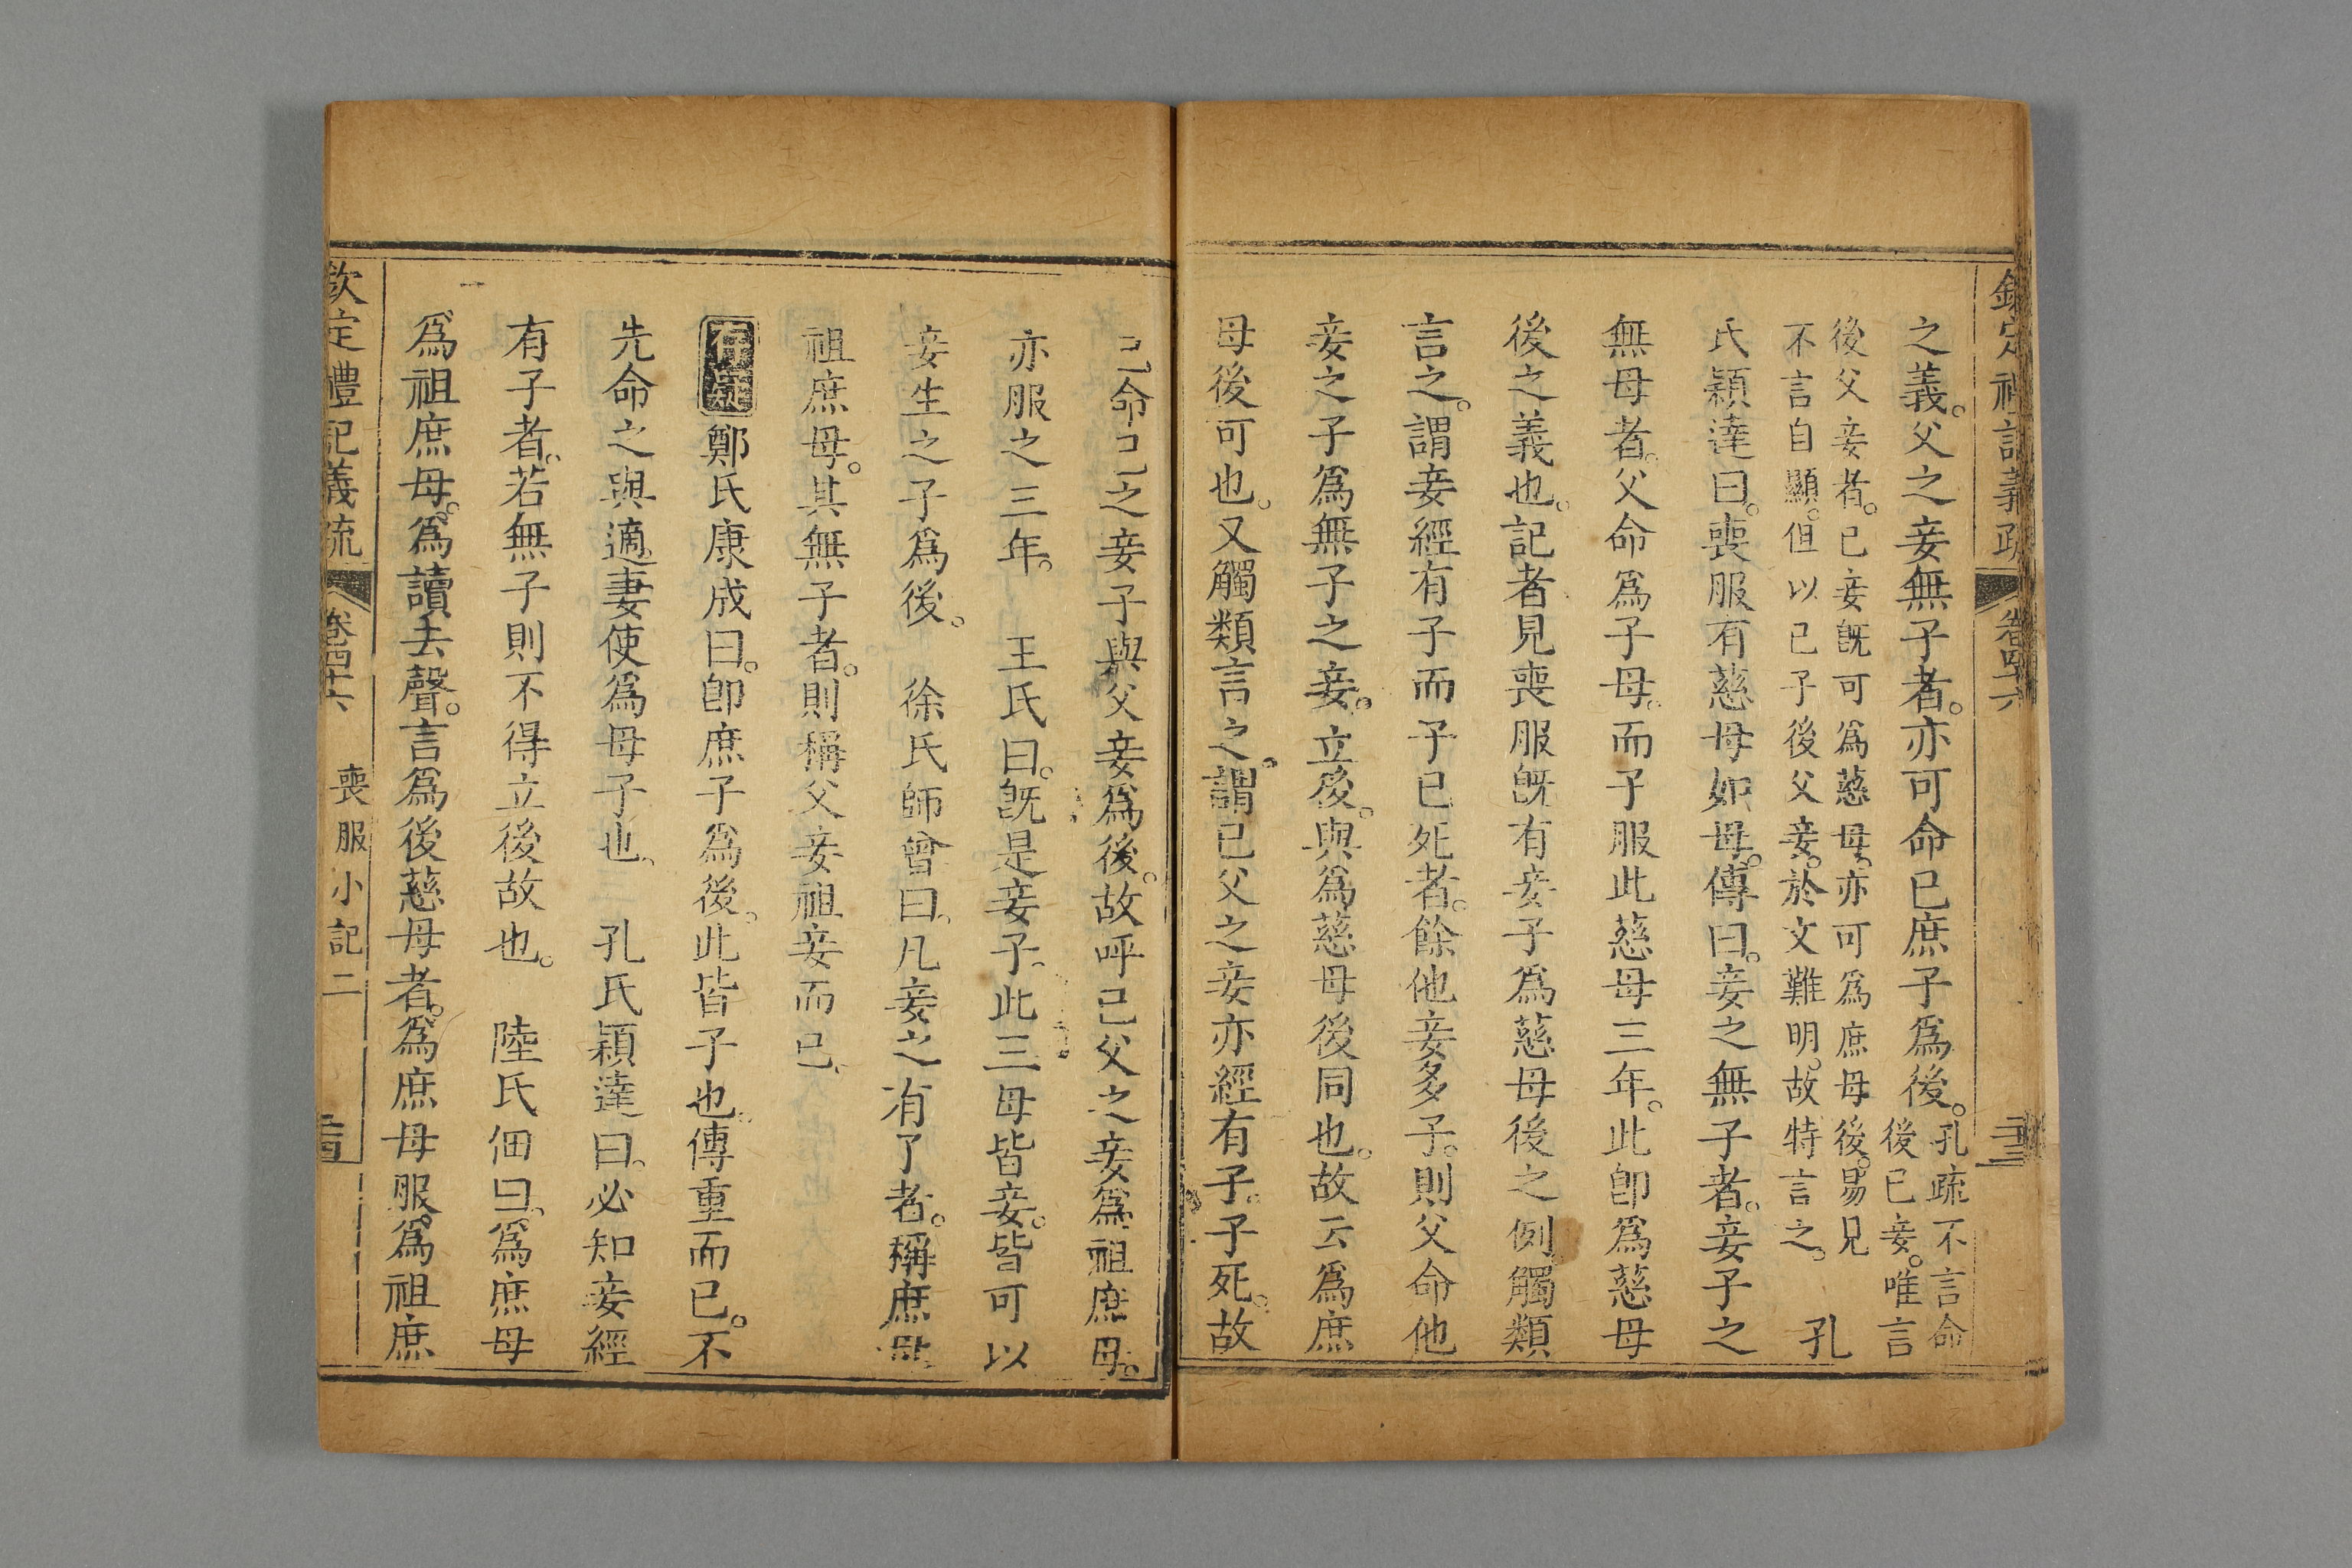 欽定禮記義疏 卷四十六 二十三
之義。父之妾無子者。亦可命己庶子爲後。孔疏不言命
後己妾。唯言
後父妾者。已妾既可爲慈母。亦可爲庶母後。易見
不言自顯。但以已子後父妾。於文難明。故特言之。 孔
氏穎達曰。喪服有慈母如母。傳曰。妾之無子者。妾子之
無母者。父命爲子母。而子服此慈母三年。此卽爲慈母
後之義也。記者見喪服旣有妾子爲慈母後之例觸類
言之。謂妾經有子而子已死者。餘他妾多子。則父命他
妾之子爲無子之妾。立後。與爲慈母後同也。故云爲庶
母後可也。又觸類言之。謂已父之妾亦經有子。子死。故
己命己之妾子與父妾爲後。故呼已父之妾爲祖庶母。
亦服之三年。 王氏曰。旣是妾子、此三母皆妾。皆可以
妾生之子爲後。 徐氏師曾曰、凡妾之有子者。稱庶母
祖庶母。其無子者。則稱父妾祖妾而已、
存疑鄭氏康成曰。卽庶子爲後。此皆子也。傳重而已。不
先命之與適妻使爲母子也、 孔氏穎達曰、必知妾經
有子者、若無子則不得立後故也。 陸氏佃曰、爲庶母
爲祖庶母。爲讀去聲。言爲後慈母者。爲庶母服。爲祖庶
欽定禮記義疏 卷四十六 喪服小記二 二十四